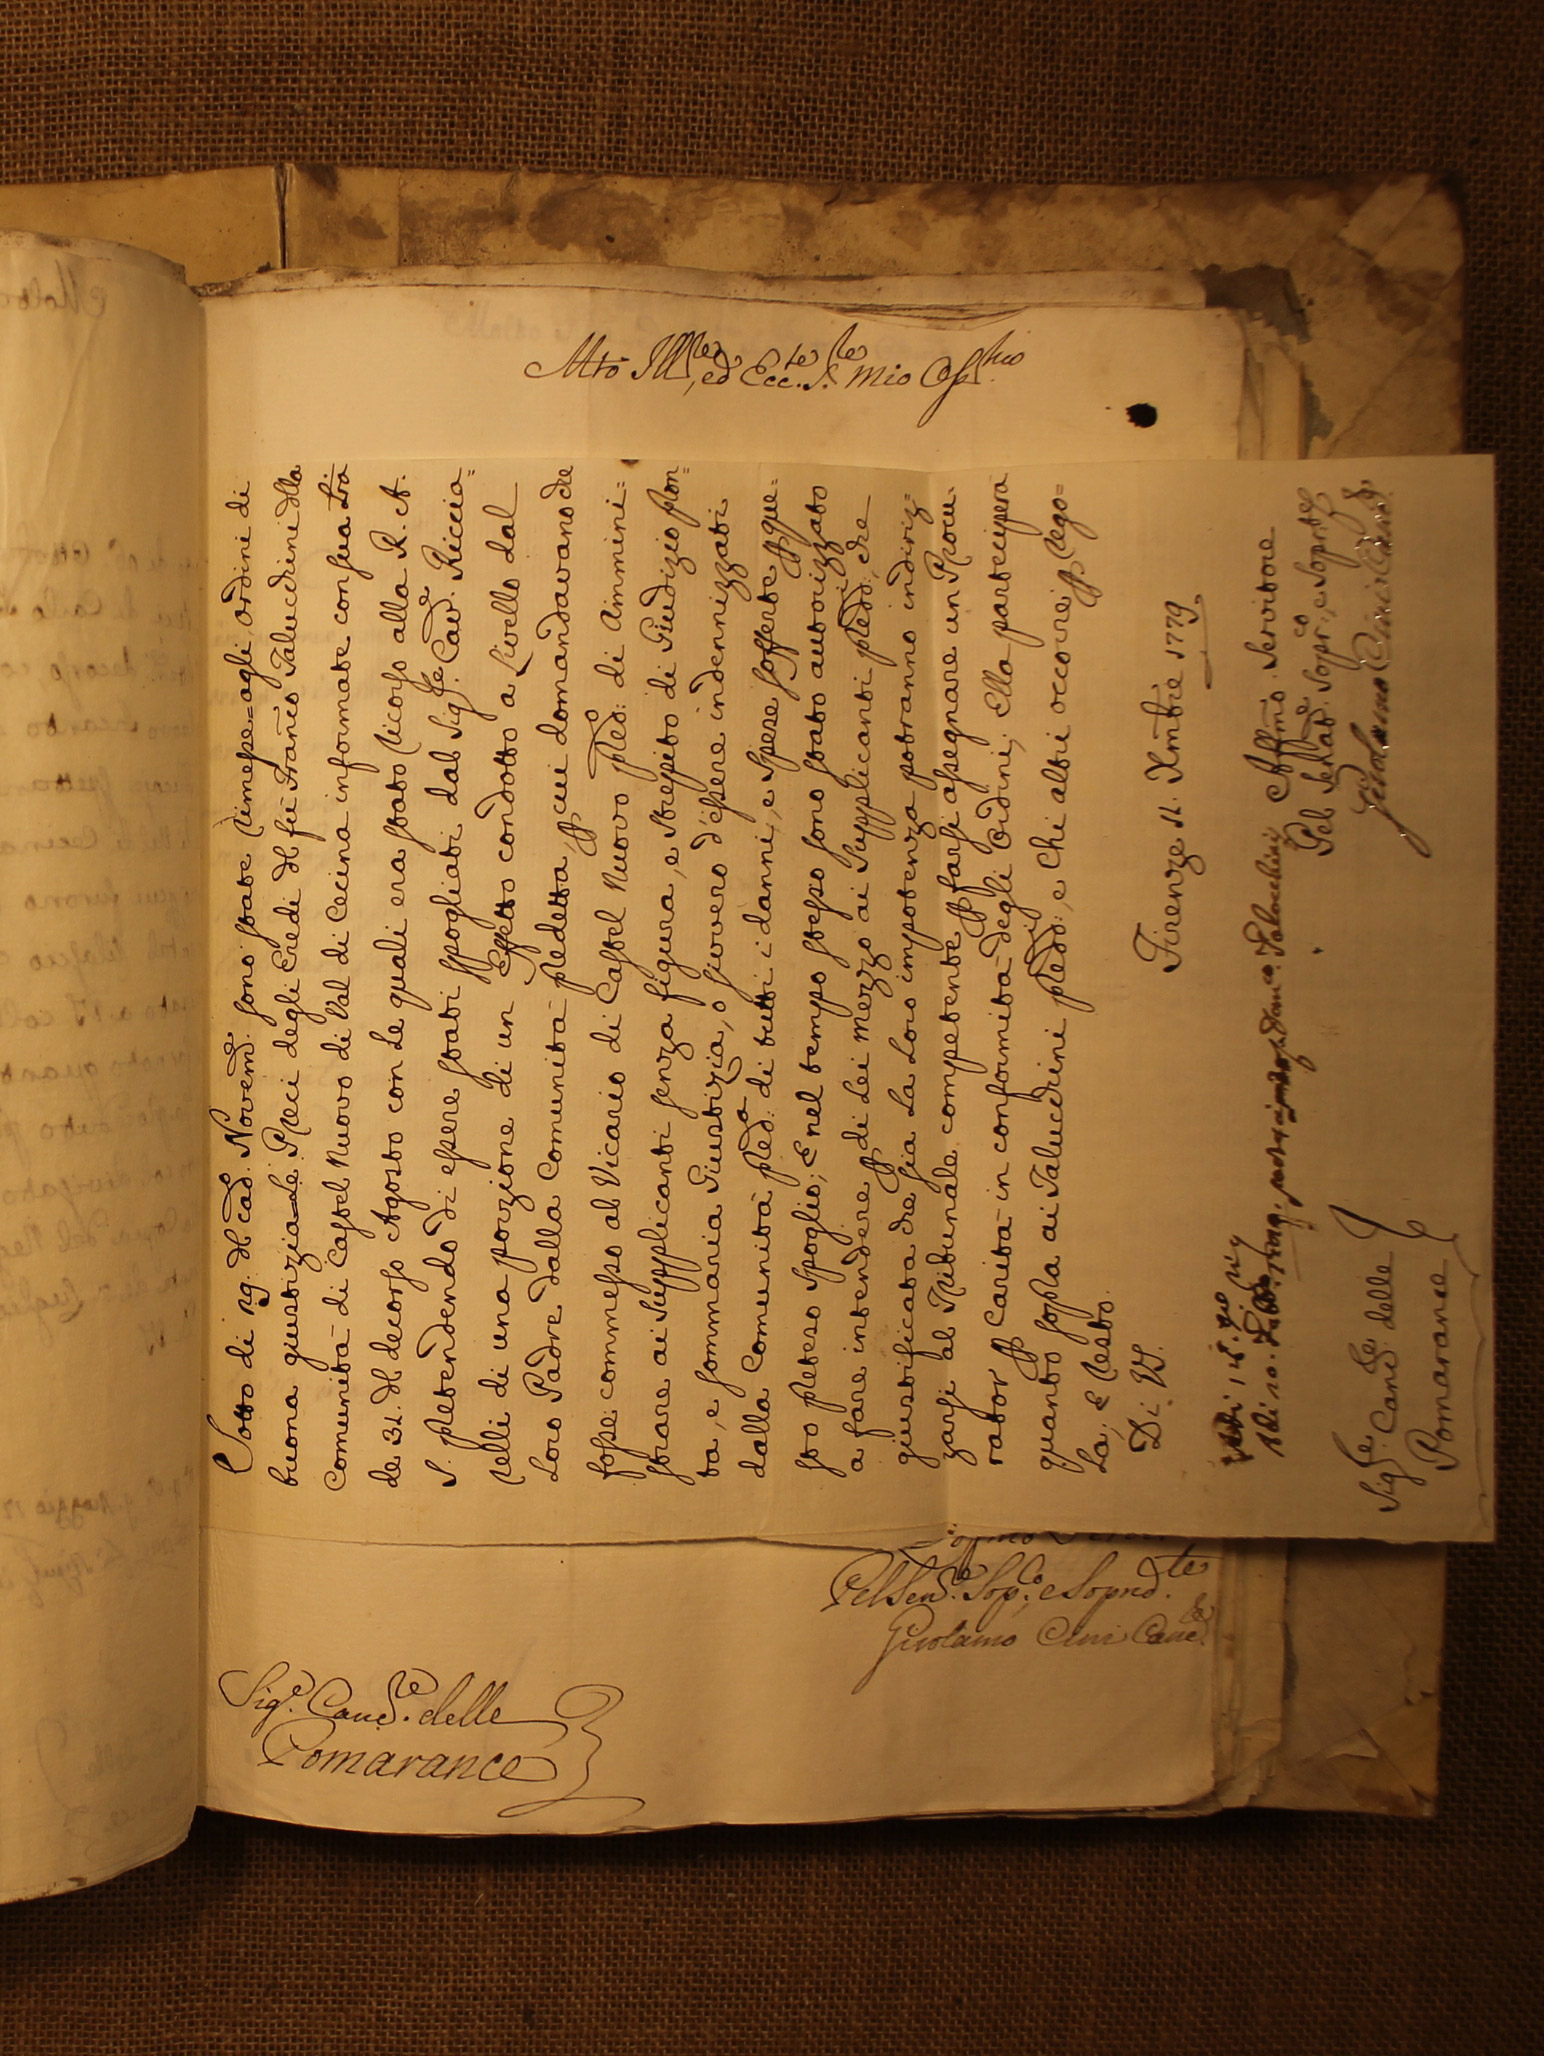 Mto Ill.re, ed Ecc.te S.re mio Oss.mo
Sotto dì 29. del cad. Novem.e sono state rimesse agli ordini di
buona giustizia le Preci degli Eredi del fù Fran.co Talucchini della
Comunità di Castel Nuovo di Val di Cecina informate con sua Lr̃a
de 31. del decorso Agosto con le quali era stato ricorso alla R. A.
S. pretendendo di essere stati spogliati dal Sig.re Cav.e Riccia=
relli di una porzione di un Effetto condotto a Livello dal
Loro Padre dalla Comunità predetta, p cui domandavano che
fosse commesso al Vicario di Castel Nuovo pred.o di Ammini=
strare ai Supplicanti senza figura, e strepito di Giudizio pron=
ta, e sommaria Giustizia, o fivvero d'essere indennizzati
dalla Comunità pred.a di tutti i danni, e spese sofferte p que=
sto preteso spoglio; E nel tempo stesso sono stato autorizzato
a fare intendere p di Lei mezzo ai Supplicanti pred.i, che
giustificata che sia la Loro impotenza potranno indiriz=
zarsi al Tribunale competente p farsi assegnare un Procu=
rator p Carità in conformità degli Ordini; Ella parteciperà
quanto sopra ai Talucchini pred.i, e chi altri occorre p rego=
la; E resto.
Di VS.
Firenze 11. Xmbre 1779.
Aff.mo Servitore
Pel Senat.e Sopr.co, e Soprte
Girolamo Cini Canc.
Sig.re Canc.re delle
Pomarance
Pel Sen.e Sop.co, e Soprd.te
Girolamo Cini Canc.
Sig.e Canc.re delle
Pomarance